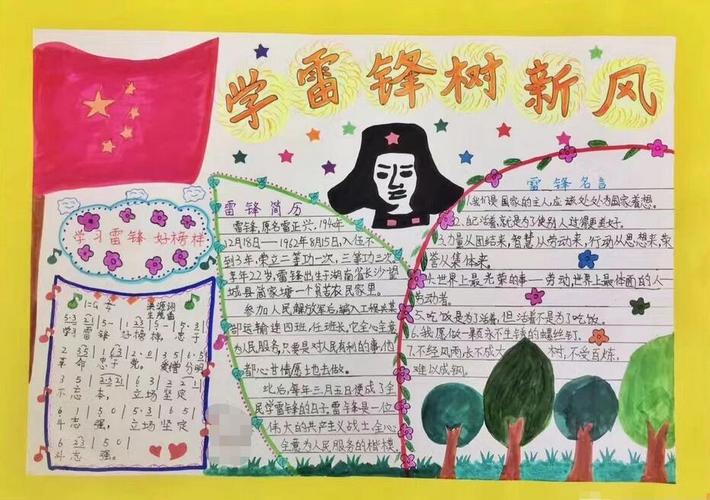 学雷锋树新风
学习雷锋 好榜样
1=G
洪源词
生茂曲
学习雷锋 好榜样, 忠于
革命 忠于党, 爱憎 分明
不忘本, 立场 坚定
斗志强, 立场 坚定
斗志强。
雷锋简历
雷锋,原名雷正兴,1940年
12月18日—1962年8月15日,入伍不
到3年,荣立二等功一次,三等功二次
享年22岁,雷锋出生于湖南省长沙望
城县简家塘一个贫农民家里。
参加人民解放军后编入工程兵某
部运输连四班,任班长,它全心全意
为人民服务,只要是对人民有利的事,他
都心甘情愿去做。
此后,每年三月五日便成了全
民学雷锋的日子,雷锋是一位
伟大的共产主义战士,全心
全意为人民服务的楷模。
雷锋名言
1.我们是国家的主人,应该处处为国家着想。
2.记活着,就是为了使别人过得更美好。
3.力量从团结来,智慧从劳动来,行动从思想来,荣
誉从集体来。
4.世界上最光荣的事—劳动,世界上最体面的人
劳动者。
5.吃饭是为了活着,但活着不是为了吃饭。
6.我愿做一颗永不生锈的螺丝钉。
7.不经风雨,长不成大树,不受百炼,
难以成钢。